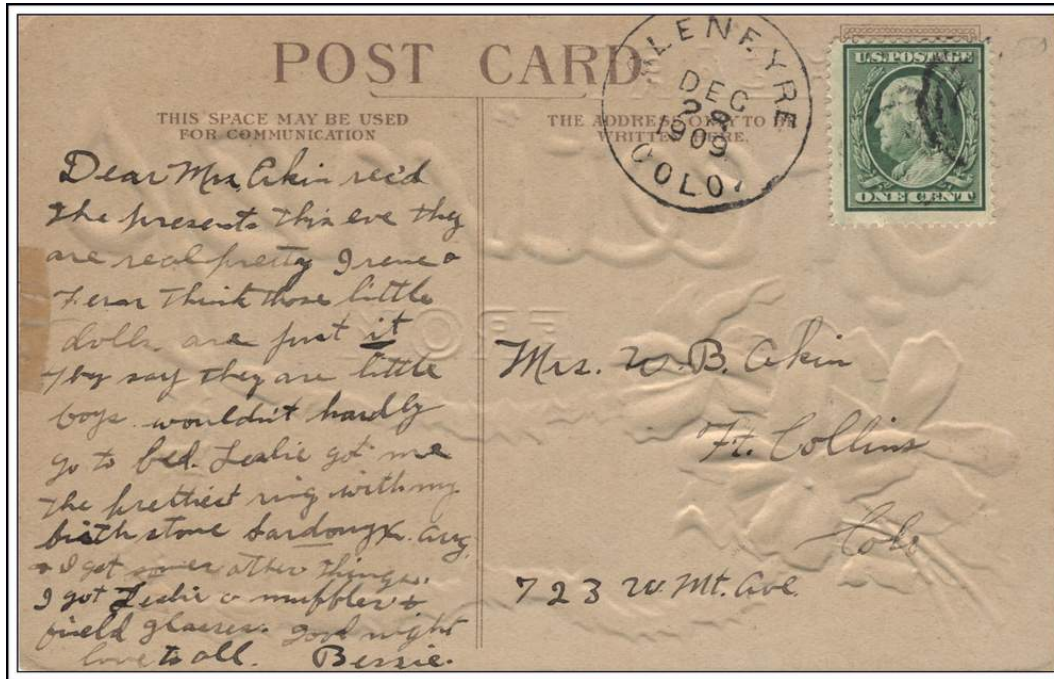 POST CARD
THIS SPACE MAY BE USED
FOR COMMUNICATION
THE ADDRESS ONLY TO BE
WRITTEN HERE.
GLENEYRE
DEC
1909
COLO.
U.S. POSTAGE
ONE CENT
Dear Mrs. Akin rec'd
the presents this eve they
are real pretty Irene &
think those little
dolls are just it
they say they are little
boys wouldn't hardly
go to bed. Leslie got me
the prettiest ring with my
birth stone Sardonyx. Aug.
& I got other things.
I got Leslie a muffler &
field glasses. Good night
love to all. Bessie.
Mrs. W. B. Akin
Ft. Collins
Colo
723 W. Mt. Ave
FROM